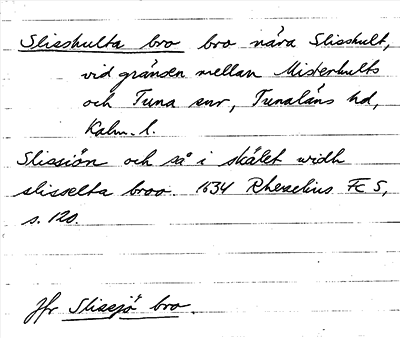 Slisshulta bro bro nära Slisshult,
vid gränsen mellan Misterhults
och Tuna snr, Tunaläns hd,
Kalm. l.
Slissiön och så i skälet widh
slisselta broo. 1634 Rhezelius FC 5,
s. 120.
Jfr Slissjö bro.